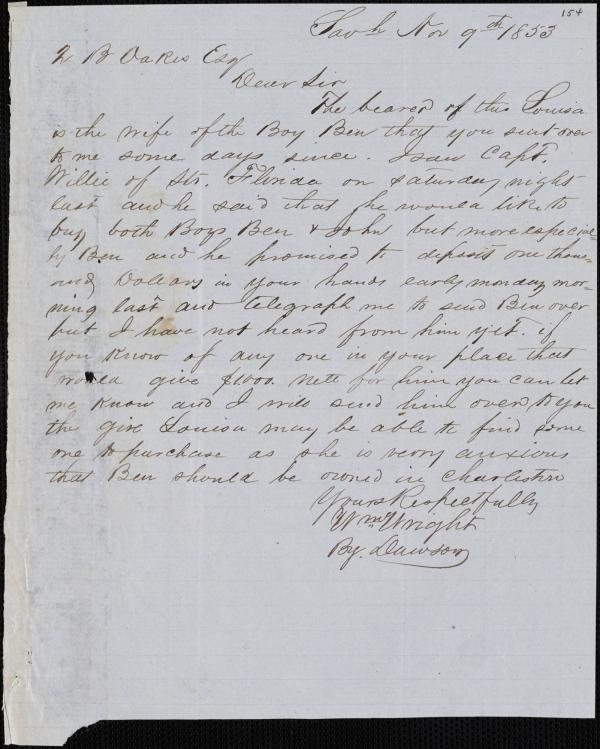 154
Savh Nov 9th 1853
Z B Oakes Esq
Dear Sir
The bearer of this Louisa
is the wife of the Boy Ben that you sent over
to me some days since. I saw Capt.
Willie of Str. Florida on Saturday night
last and he said that he would like to
buy both Boys Ben & John but more especial-
ly Ben and he promised to deposit one thous-
and Dollars in your hands early monday mor-
ning last and telegraph me to send Ben over
but I have not heard from him yet. if
you know of any one in your place that
would give $1000. nett for him you can let
me know and I will send him over to you
the girl Louisa may be able to find some
one to purchase as she is verry anxious
that Ben should be owned in Charleston
Yours Respectfully
Wm Wright
By. Dawson